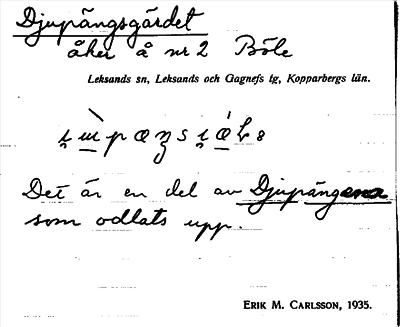 Djupängsgärdet
åker å nr 2 Böle
Leksands sn, Leksands och Gagnefs tg, Kopparbergs län.
Det är en del av Djupängena
som odlats upp.
ERIK M. CARLSSON, 1935.